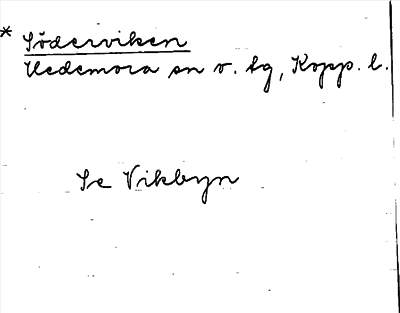 * Söderviken
Hedemora sn o. tg, Kopp. l.
Se Vikbyn